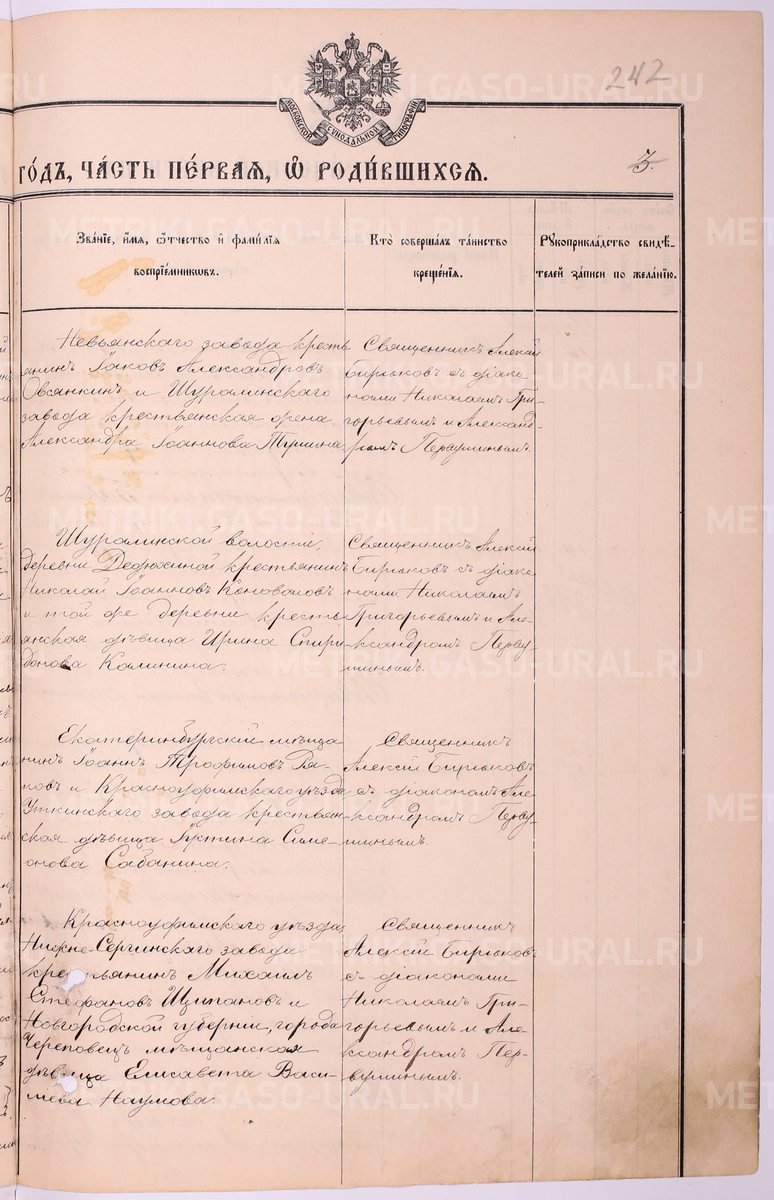 242
МОСКОВСКОЙ СѴНОДАЛЬНОЙ ТИПОГРАФІИ
го́дъ, ча́сть пе́рвая, ѽ роди́вшихсѧ.
3.
Зва́нїе, и҆́мѧ, ѻ҆́тчество и҆ фами́лїѧ
воспрїе́мниковъ.
Кто̀ соверша́лъ та́инство
креще́нїѧ.
Рꙋкоприкла́дство свидѣ́-
телей за́писи по жела́нїю.
Невьянскаго завода кресть
янинъ Іаковъ Александровъ
Овсянкинъ и Шуралинскаго
завода крестьянская жена
Александра Іоаннова
Священникъ Алексій
Бирюковъ съ діако-
нами Николаемъ Гри-
горьевымъ и Александ-
ромъ Первушинымъ.
Шуралинской волости,
деревни крестьянинъ
Николай Іоанновъ Коноваловъ
и той же деревни кресть
янская дѣвица Ирина Спири
донова Калинина.
Священникъ Алексій
Бирюковъ съ діако-
нами Николаемъ
Григорьевымъ и Але-
ксандромъ Перву-
шинымъ.
Екатеринбургскій мѣща
нинъ Іоаннъ Трофимовъ Ря-
ковъ и Красноуфимскаго уѣзда
Уткинскаго завода крестьян-
ская дѣвица Іустина Симе-
онова Сабанина.
Священникъ
Алексій Бирюковъ
съ діакономъ Але-
ксандромъ Перву-
шинымъ.
Красноуфимскаго уѣзда
Нижне-Сергинскаго завода
крестьянинъ Михаилъ
Стефановъ Щипановъ и
Новгородской губерніи, города
Череповецъ мѣщанская
дѣвица Елисавета Васи-
льева Наумова.
Священникъ
Алексій Бирюковъ
съ діаконами
Николаемъ Гри-
горьевымъ и Але-
ксандромъ Пер-
вушинымъ.
METRIKI.GASO-URAL.RU